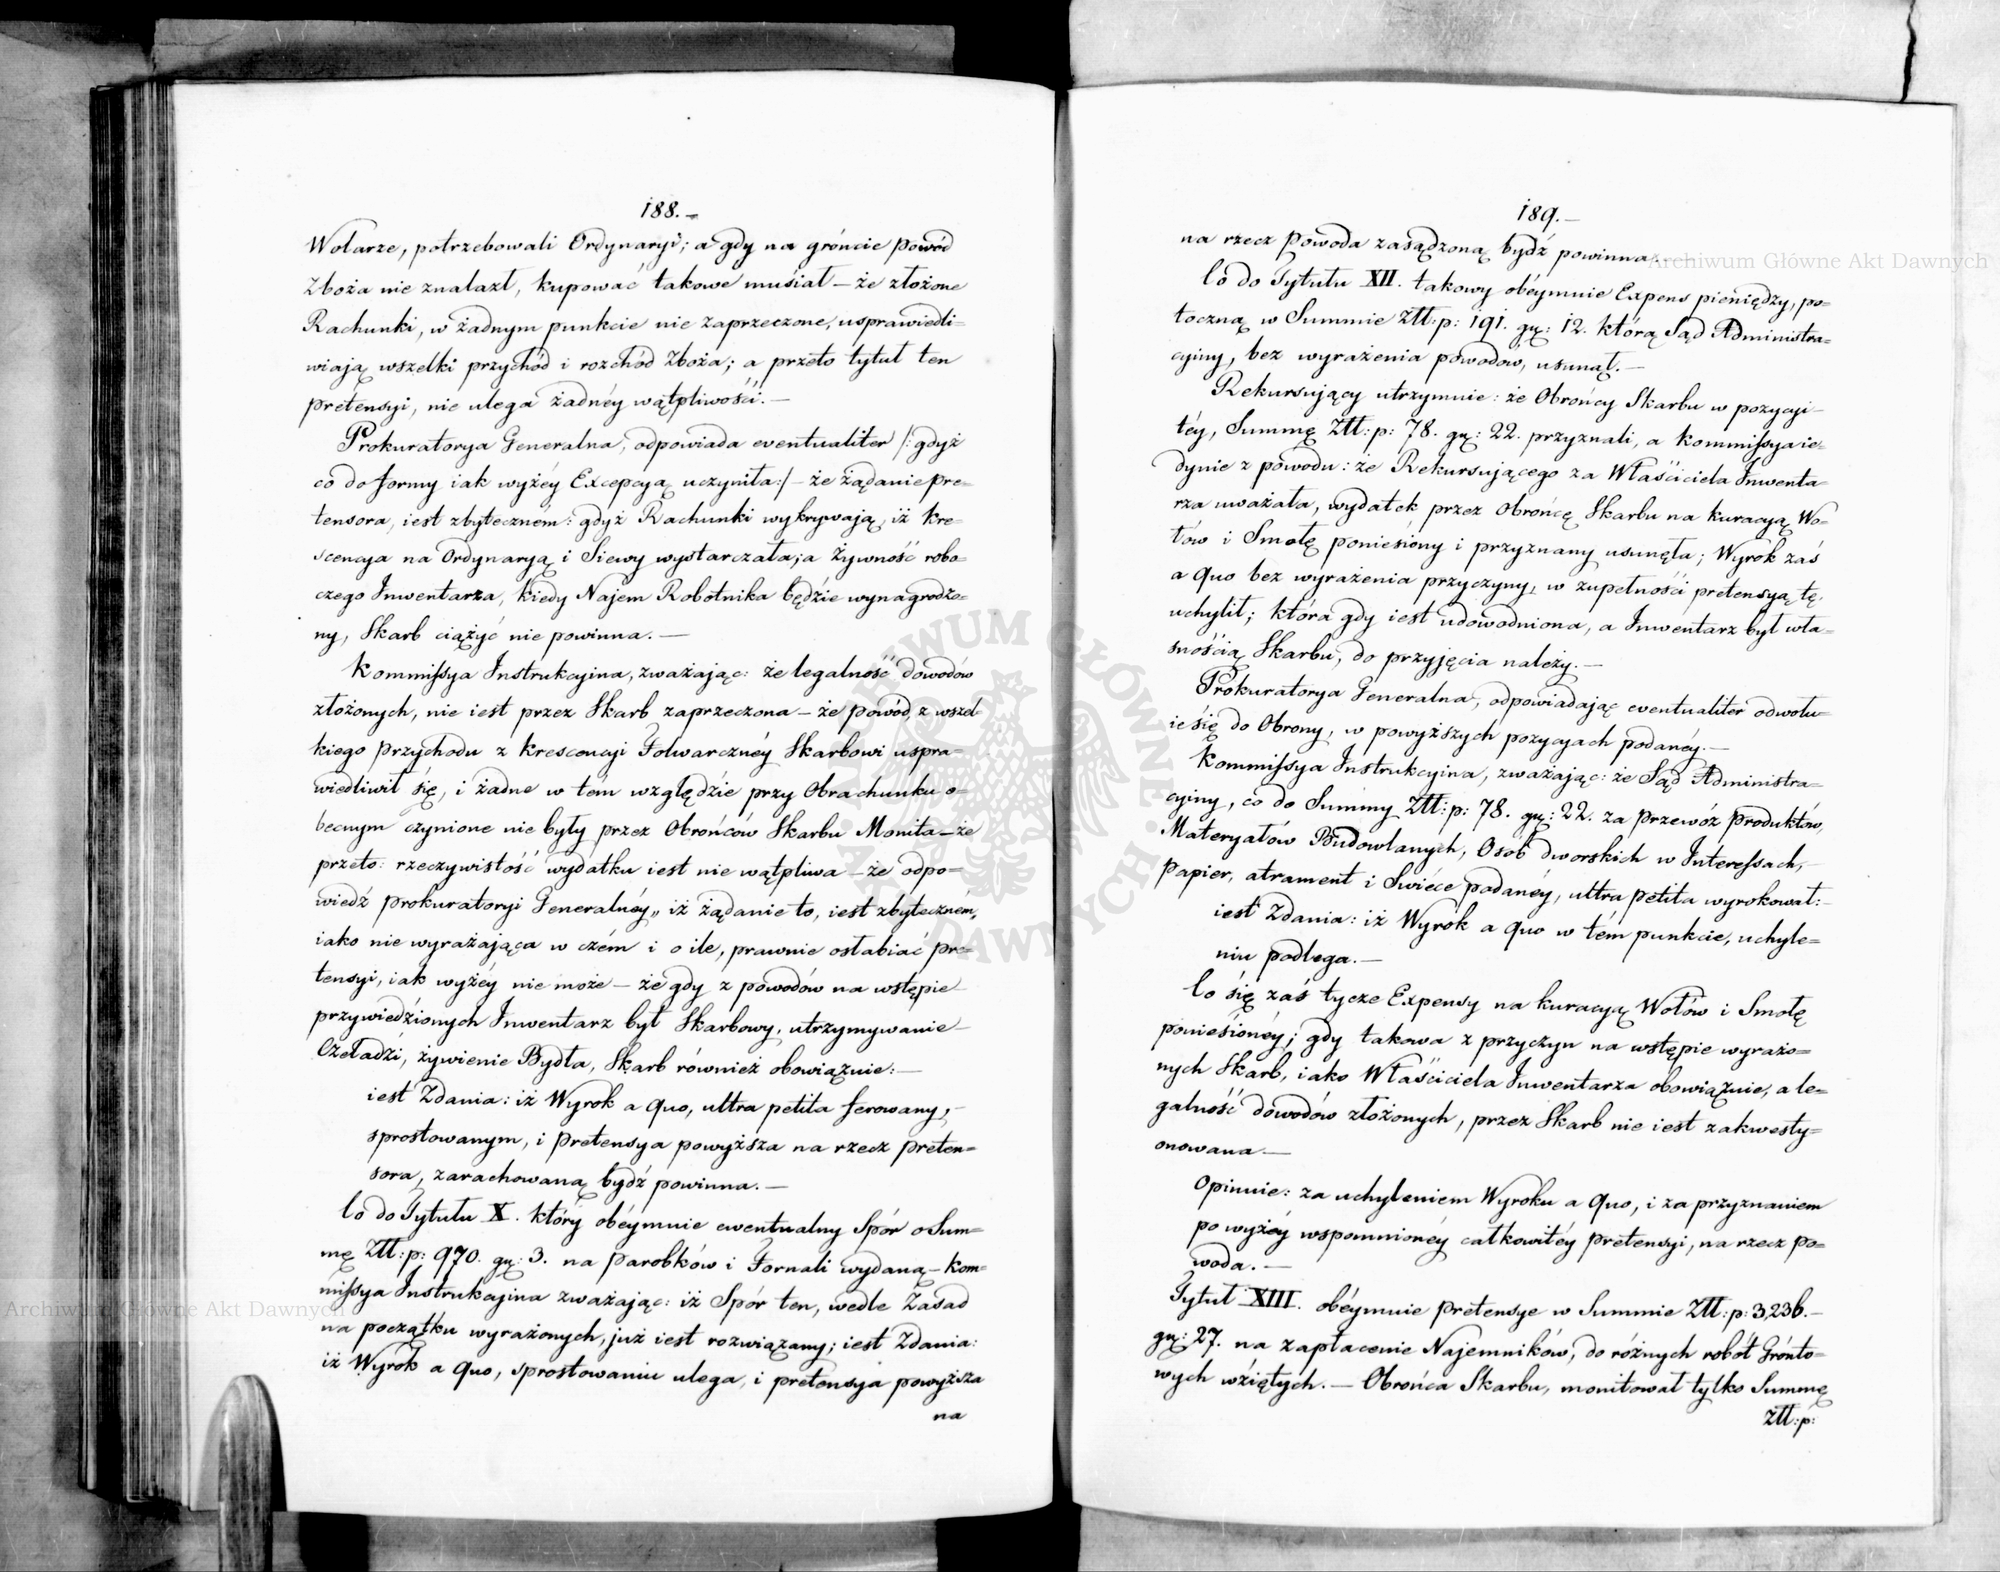 188.
Wolarze, potrzebowali Ordynaryi; a gdy na gróncie powód
Zboża nie znalazł, kupować takowe musiał – że złożone
Rachunki, w żadnym punkcie nie zaprzeczone, usprawiedli=
wiają wszelki przychód i rozchód Zboża; a przeto tytuł ten
pretensyi, nie ulega żadnéy wątpliwości. –
Prokuratorya Generalna, odpowiada eventualiter /: gdyż
co do formy iak wyżéy Excepcyą uczyniła :/ – że żądanie pre=
tensora, iest zbyteczném: gdyż Rachunki wykrywają, iż kre=
scencya na Ordynaryą i Siewy wystarczała; a żywność robo=
czego Inwentarza, kiedy Najem Robotnika będzie wynagrodzo=
ny, Skarb ciążyć nie powinna. –
Kommissya Instrukcyina, zważając: że legalność dowodów
złożonych, nie iest przez Skarb zaprzeczona – że powód z wszel=
kiego przychodu z krescencyi Folwarcznéy Skarbowi uspra=
wiedliwił się, i żadne w tém względzie przy Obrachunku o=
becnym czynione nie były przez Obrońców Skarbu Monita – że
przeto: rzeczywistość wydatku iest nie wątpliwa – że odpo=
wiedź prokuratoryi Generalnéy „ iż żądanie to, iest zbyteczném,
iako nie wyrażająca w czém i o ile, prawnie osłabiać pre=
tensyi, iak wyżéy nie może – że gdy z powodów na wstępie
przywiedzionych Inwentarz był Skarbowy, utrzymywanie
Czeladzi, żywienie Bydła, Skarb również obowiązuie: –
iest Zdania: iż Wyrok a quo, ultra petita ferowany, –
sprostowanym, i pretensya powyższa na rzecz preten=
sora, zarachowaną bydź powinna. –
Co do Tytułu X. który obéymuie ewentualny Spór o Sum=
mę Złł: p: 970. gr: 3. na parobków i Fornali wydaną – kom=
missya Instrukcyina zważając: iż Spór ten, wedle Zasad
na początku wyrażonych, już iest rozwiązany; iest Zdania:
iż Wyrok a quo, sprostowaniu ulega, i pretensya powyższa
na
189.
na rzecz powoda zasądzoną bydź powinna. –
Co do Tytułu XII. takowy obéymuie Expens pieniędzy, po=
toczną w Summie Złł: p: 191. gr: 12. którą Sąd Administra=
cyiny, bez wyrażenia powodow, usunął. –
Rekursujący utrzymuie: że Obrońcy Skarbu w pozycyi
téy, Summę Złł: p: 78. gr: 22. przyznali, a kommissya ie=
dynie z powodu: że Rekursującego za Właściciela Inwenta=
rza uważała, wydatek przez Obrońcę Skarbu na kuracyą Wo=
łów i Smołę poniesiony i przyznany usunęła; Wyrok zaś
a quo bez wyrażenia przyczyny, w zupełności pretensyą tę,
uchylił; która gdy iest udowodniona, a Inwentarz był wła=
snością Skarbu, do przyjęcia należy. –
Prokuratorya Generalna, odpowiadając eventualiter odwołu=
ie się do Obrony, w powyższych pozycyach podanéy. –
Kommissya Instrukcyina, zważając: że Sąd Administra=
cyiny, co do Summy Złł: p: 78. gr: 22. za przewóz produktów,
Materyałów Budowlanych, Osób dworskich w Interessach, –
papier, atrament i Swiéce podanéy, ultra petita wyrokował: –
iest Zdania: iż Wyrok a quo w tém punkcie, uchyle=
niu podlega. –
Co się zaś tycze Expensy na kuracyą Wołów i Smołę
poniesionéy; gdy takowa z przyczyn na wstępie wyrażo=
nych Skarb, iako Właściciela Inwentarza obowiązuie, a le=
galność dowodów złożonych, przez Skarb nie iest zakwesty=
onowana. –
Opinuie: za uchyleniem Wyroku a quo, i za przyznaniem
powyżéy wspomnionéy całkowitéy pretensyi, na rzecz po=
woda. –
Tytuł XIII. obéymuie pretensye w Summie Złł: p: 3,236. –
gr: 27. na zapłacenie Najemników, do różnych robót Grónto=
wych wziętych. – Obrońca Skarbu, monitował tylko Summę
Złł: p:
Archiwum Główne Akt Dawnych
Archiwum Główne Akt Dawnych
ARCHIWUM GŁÓWNE AKT DAWNYCH